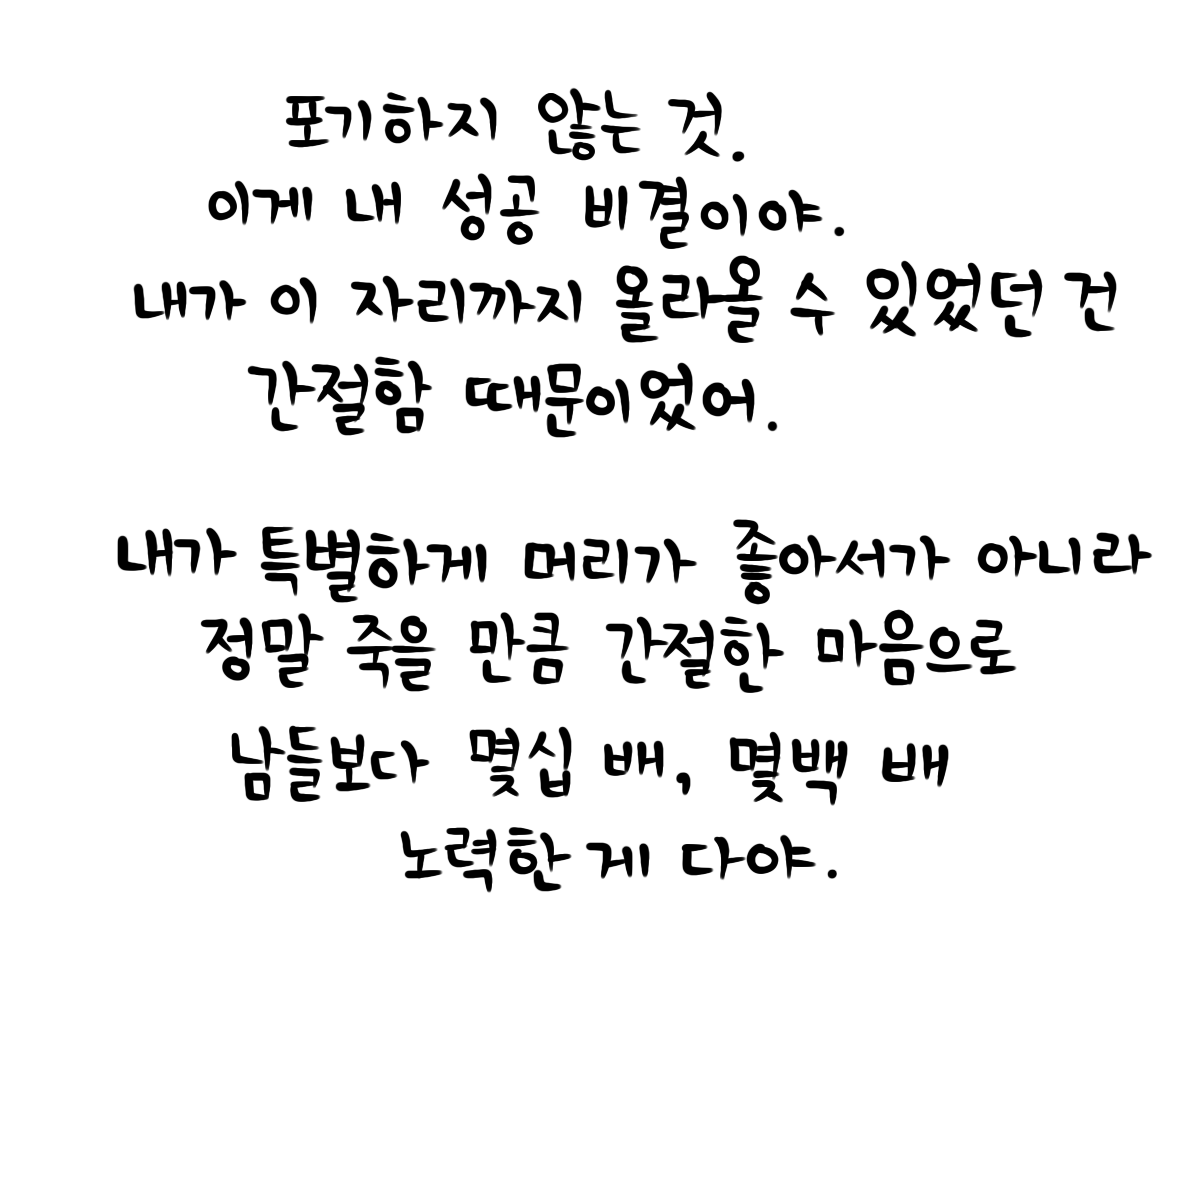 포기하지 않는 것.
이게 내 성공 비결이야.
내가 이 자리까지 올라올 수 있었던 건
간절함 때문이었어.
내가 특별하게 머리가 좋아서가 아니라
정말 죽을 만큼 간절한 마음으로
남들보다 몇십 배, 몇백 배
노력한 게 다야.